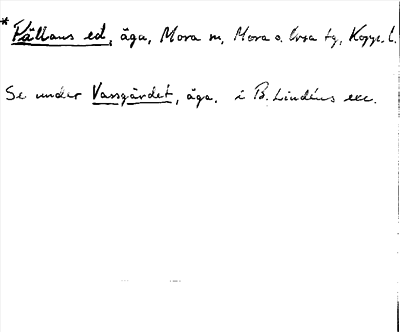 *Pällans ed, äga, Mora sn, Mora o. Orsa tg, Kopp. l.
Se under Vassgärdet, äga, i B. Lindéns exc.